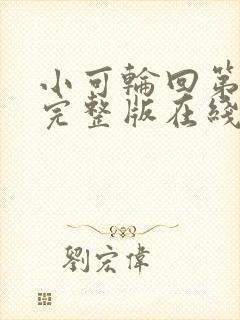 小可輪回第
完整版在綫
劉宏偉